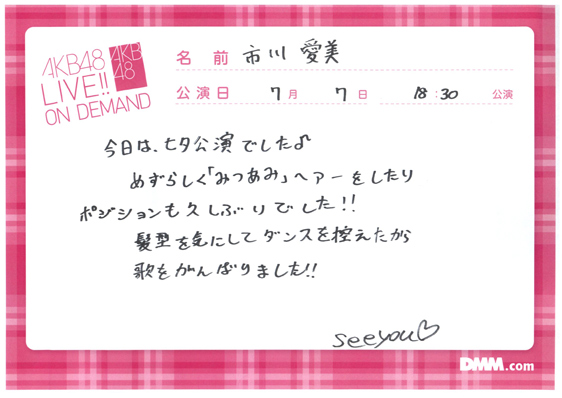 AKB48
LIVE!!
ON DEMAND
AKB
48
名 前 市川 愛美
公演日 7月 7日 18:30 公演
今日は、七夕公演でした♪
めずらしく「みつあみ」ヘアーをしたり
ポジションも久しぶりでした!!
髪型を気にしてダンスを控えたから
歌をがんばりました!!
seeyou♡
DMM.com